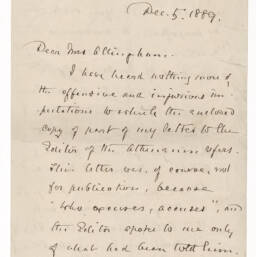 Dec. 5. 1889.
Dear Mrs Allingham.
I have heard nothing more of
the offensive and injurious im-
putations to which the enclosed
copy of part of my letter to the
Editor of the Athenaeum refers.
This letter was, of course, not
for publication, because
"who excuses, accuses", and
the Editor spoke to me only
of what had been told him.